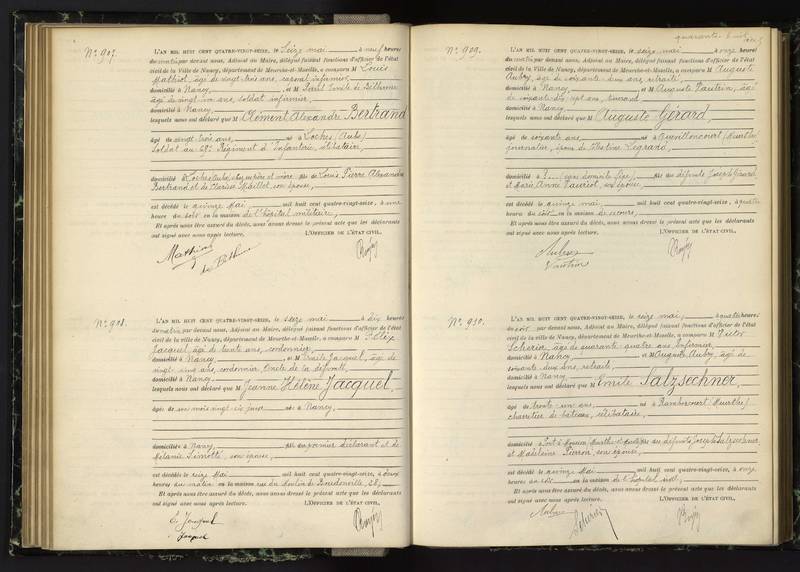 N° 907.
L'AN MIL HUIT CENT QUATRE-VINGT-SEIZE, le seize mai à neuf heures
du matin par devant nous, Adjoint au Maire, délégué faisant fonctions d'officier de l'état
civil de la Ville de Nancy, département de Meurthe-et-Moselle, a comparu M Louis
Mathiot, âgé de vingt trois ans, caporal infirmier,
domicilié à Nancy, et M Paul Emile de Béthune
âgé de vingt un ans, soldat infirmier,
domicilié à Nancy,
lesquels nous ont déclaré que M Clément Alexandre Bertrand
âgé de vingt trois ans, né à Loches (Aube)
soldat au 69e Régiment d'Infanterie, célibataire,
domicilié à Loches (Aube) chez ses père et mère fils de Louis Pierre Alexandre
Bertrand et de Clarisse Maillot, son épouse,
est décédé le quinze Mai mil huit cent quatre-vingt-seize, à une
heure du soir en la maison de l'hôpital militaire,
Et après nous être assuré du décès, nous avons dressé le présent acte que les déclarants
ont signé avec nous après lecture. L'OFFICIER DE L'ÉTAT CIVIL,
Mathiot
de Béthune
N° 908.
L'AN MIL HUIT CENT QUATRE-VINGT-SEIZE, le seize mai à dix heures
du matin par devant nous, Adjoint au Maire, délégué faisant fonctions d'officier de l'état
civil de la ville de Nancy, département de Meurthe-et-Moselle, a comparu M Félix
Jacquel, âgé de trente ans, cordonnier,
domicilié à Nancy, et M Emile Jacquel, âgé de
vingt cinq ans, cordonnier, oncle de la défunte,
domicilié à Nancy
lesquels nous ont déclaré que M Jeanne Hélène Jacquel,
âgée de six mois vingt-six jours née à Nancy,
domiciliée à Nancy, fille du premier déclarant et de
Mélanie Simottel, son épouse,
est décédée le seize Mai mil huit cent quatre-vingt-seize, à deux
heures du matin en la maison rue du Moulin de Boudonville,
Et après nous être assuré du décès, nous avons dressé le présent acte que les déclarants
ont signé avec nous après lecture. L'OFFICIER DE L'ÉTAT CIVIL,
E. Jacquel
Jacquel
quarante-huit
N° 909.
L'AN MIL HUIT CENT QUATRE-VINGT-SEIZE, le seize mai à onze heures
du matin par devant nous, Adjoint au Maire, délégué faisant fonctions d'officier de l'état
civil de la Ville de Nancy, département de Meurthe-et-Moselle, a comparu M Auguste
Aubry, âgé de soixante-deux ans, retraité,
domicilié à Nancy, et M Auguste Vautrin, âgé
de soixante-dix-sept ans,
domicilié à Nancy
lesquels nous ont déclaré que M Auguste Gérard,
âgé de soixante ans, né à (Meurthe)
journalier, époux de Célestine Legrand,
domicilié à (sans domicile fixe), fils des défunts Joseph Gérard
et Marie Anne Vauriot, son épouse,
est décédé le quinze mai, mil huit cent quatre-vingt-seize, à quatre
heures du soir en la maison de secours,
Et après nous être assuré du décès, nous avons dressé le présent acte que les déclarants
ont signé avec nous après lecture. L'OFFICIER DE L'ÉTAT CIVIL,
Aubry
Vautrin
N° 910.
L'AN MIL HUIT CENT QUATRE-VINGT-SEIZE, le seize mai, à quatre heures
du soir par devant nous, Adjoint au Maire, délégué faisant fonctions d'officier de l'état
civil de la ville de Nancy, département de Meurthe-et-Moselle, a comparu M Victor
âgé de quarante-quatre ans, infirmier,
domicilié à Nancy, et M Auguste Aubry, âgé de
soixante-deux ans, retraité,
domicilié à Nancy,
lesquels nous ont déclaré que M Emile Salzsechner,
âgé de trente-un ans, né à Rambercourt (Meurthe)
charretier de bateau, célibataire,
domicilié à Pont à Mousson (Meurthe et Moselle) fils des défunts Joseph Salzsechner,
et Madeleine Pierron, son épouse,
est décédé le quinze Mai mil huit cent quatre-vingt-seize, à onze
heures du soir en la maison de l'hôpital civil,
Et après nous être assuré du décès, nous avons dressé le présent acte que les déclarants
ont signé avec nous après lecture. L'OFFICIER DE L'ÉTAT CIVIL,
Aubry